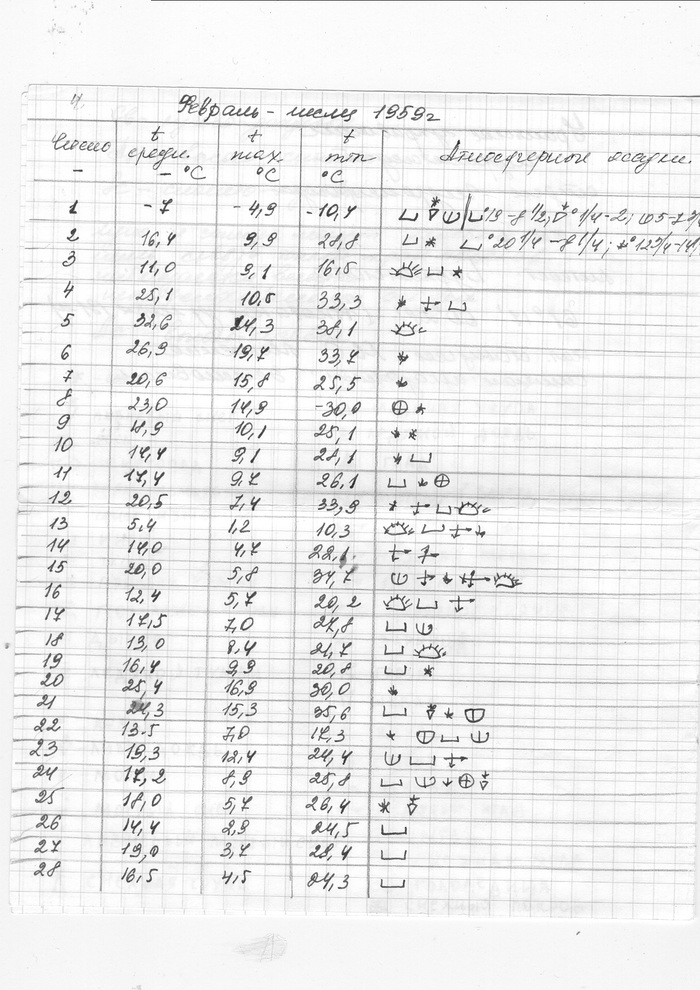 4.
Февраль - месяц 1959г
Число t средн. t max t min Атмосферные осадки.
- - °C °C °C
1 -7 -4,9 -10,4
2 16,4 9,9 28,8
3 11,0 9,1 16,5
4 25,1 10,5 33,3
5 32,6 24,3 38,1
6 26,9 19,7 33,7
7 20,6 15,8 25,5
8 23,0 14,9 -30,0
9 18,9 10,1 25,1
10 14,4 9,1 28,1
11 17,4 9,7 26,1
12 20,5 7,4 33,9
13 5,4 1,2 10,3
14 14,0 4,7 22,1
15 20,0 5,8 34,7
16 12,4 5,7 20,2
17 17,5 7,0 27,8
18 13,0 8,4 21,7
19 16,4 9,9 20,8
20 25,4 16,9 30,0
21 24,3 15,3 35,6
22 13.5 7,0 17,3
23 19,3 12,4 24,4
24 17,2 8,9 25,8
25 18,0 5,7 26,4
26 14,4 2,9 24,5
27 19,0 3,7 28,4
28 16,5 4,5 24,3